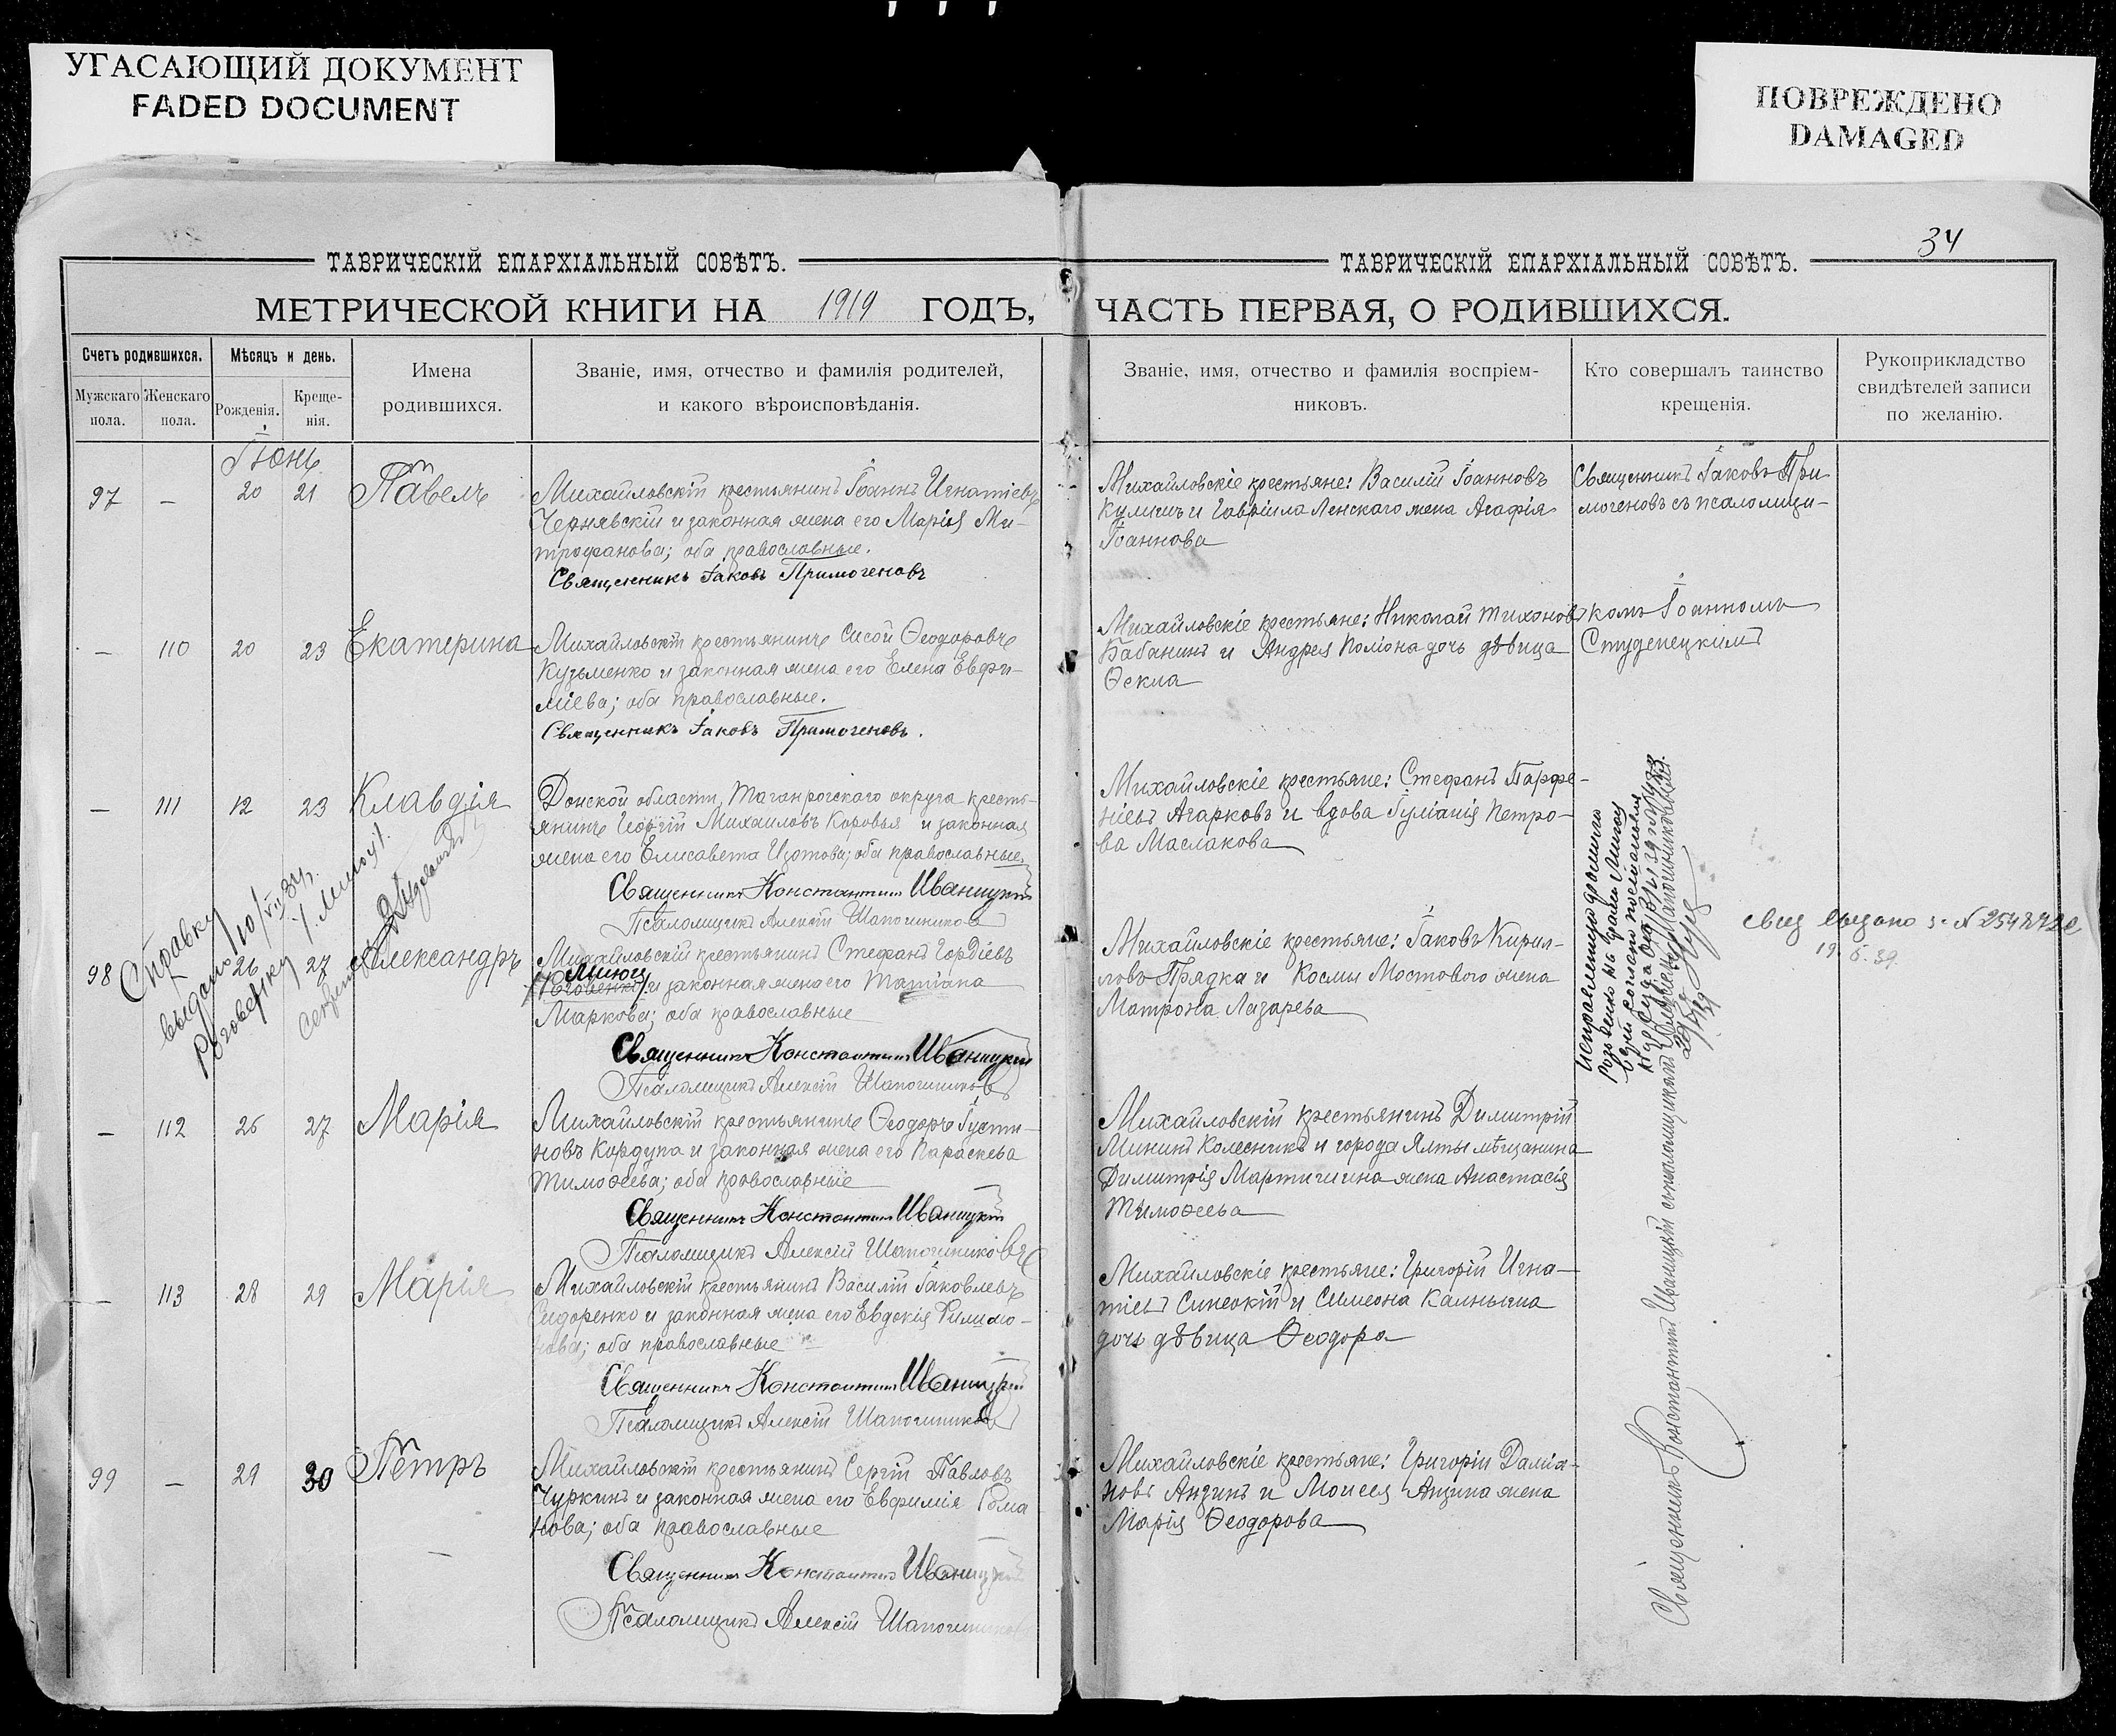 УГАСАЮЩИЙ ДОКУМЕНТ
FADED DOCUMENT
ПОВРЕЖДЕНО
DAMAGED
34
ТАВРИЧЕСКІЙ ЕПАРХІАЛЬНЫЙ СОВѢТЪ.
МЕТРИЧЕСКОЙ КНИГИ НА 1919 ГОДЪ,
Счетъ родившихся.
Мѣсяцъ и день.
Имена
родившихся.
Званіе, имя, отчество и фамилія родителей,
и какого вѣроисповѣданія.
Мужскаго
пола.
Женскаго
пола.
Рожденія.
Креще-
нія.
Іюнь
97 — 20 21 Павелъ
Михайловскій крестьянинъ Іоаннъ Игнатіевъ
Чернявскій и законная жена его Марія Ми-
трофанова; оба православные.
Священникъ Іаковъ Примогеновъ
— 110 20 23 Екатерина
Михайловскій крестьянинъ Сисой Ѳеодоровъ
Кузьменко и законная жена его Елена Евфи-
міева; оба православные.
Священникъ Іаковъ Примогеновъ.
— 111 12 23 Клавдія
Донской области, Таганрогскаго округа кресть-
янинъ Георгій Михаиловъ Коровья и законная
жена его Елисавета Изотова; оба православные
Священникъ Константинъ Иваницкій
Псаломщикъ Алексій Шапошниковъ
98 26 27 Александръ
Михайловскій крестьянинъ Стефанъ Гордіевъ
и законная жена его Татіана
Маркова; оба православные
Священникъ Константинъ Иваницкій
Псаломщикъ Алексій Шапошниковъ
Справку
выдано 10/VII 34 г.
Роговенку
— 112 26 27 Марія
Михайловскій крестьянинъ Ѳеодоръ Іусти-
новъ Кордупа и законная жена его Параскева
Тимоѳеева; оба православные
Священникъ Константинъ Иваницкій
Псаломщикъ Алексій Шапошниковъ
— 113 28 29 Марія
Михайловскій крестьянинъ Василій Іаковлевъ
Сидоренко и законная жена его Евдокія Филимо-
нова; оба православные
Священникъ Константинъ Иваницкій
Псаломщикъ Алексій Шапошниковъ
99 — 29 30 Петръ
Михайловскій крестьянинъ Сергій Павловъ
Чуркинъ и законная жена его Евфимія Рома
нова; оба православные
Священникъ Константинъ Иваницкій
Псаломщикъ Алексій Шапошниковъ
ТАВРИЧЕСКІЙ ЕПАРХІАЛЬНЫЙ СОВѢТЪ.
ЧАСТЬ ПЕРВАЯ, О РОДИВШИХСЯ.
Званіе, имя, отчество и фамилія воспріем-
никовъ.
Кто совершалъ таинство
крещенія.
Рукоприкладство
свидѣтелей записи
по желанію.
Михайловскіе крестьяне: Василій Іоанновъ
Кулишъ и Гавріила Ленскаго жена Агафія
Іоаннова
Священникъ Іаковъ При
могеновъ съ псаломщи-
комъ Іоанномъ
Студенецкимъ
Михайловскіе крестьяне: Николай Тихоновъ
Бабанинъ и Андрея Поліона дочь дѣвица
Ѳекла
Михайловскіе крестьяне: Стефанъ Парфе-
ніевъ Агарковъ и вдова Іуліанія Петро-
ва Маслакова
Михайловскіе крестьяне: Іаковъ Кирил-
ловъ Прядка и Космы Мостового жена
Матрона Лазарева
Михайловскій крестьянинъ Димитрій
Мининъ Колесникъ и города Ялты мѣщанина
Димитрія Мартишина жена Анастасія
Тимоѳеева
Михайловскіе крестьяне: Григорій Игна-
тіевъ Синеокій и Симеона Калныша
дочь дѣвица Ѳеодора
Михайловскіе крестьяне: Григорій Даміа-
новъ Анзинъ и Моисея Анзина жена
Марія Ѳеодорова
Священникъ Константинъ Иваницкій съ псаломщикомъ Алексіемъ Шапошниковымъ
19.5.39.